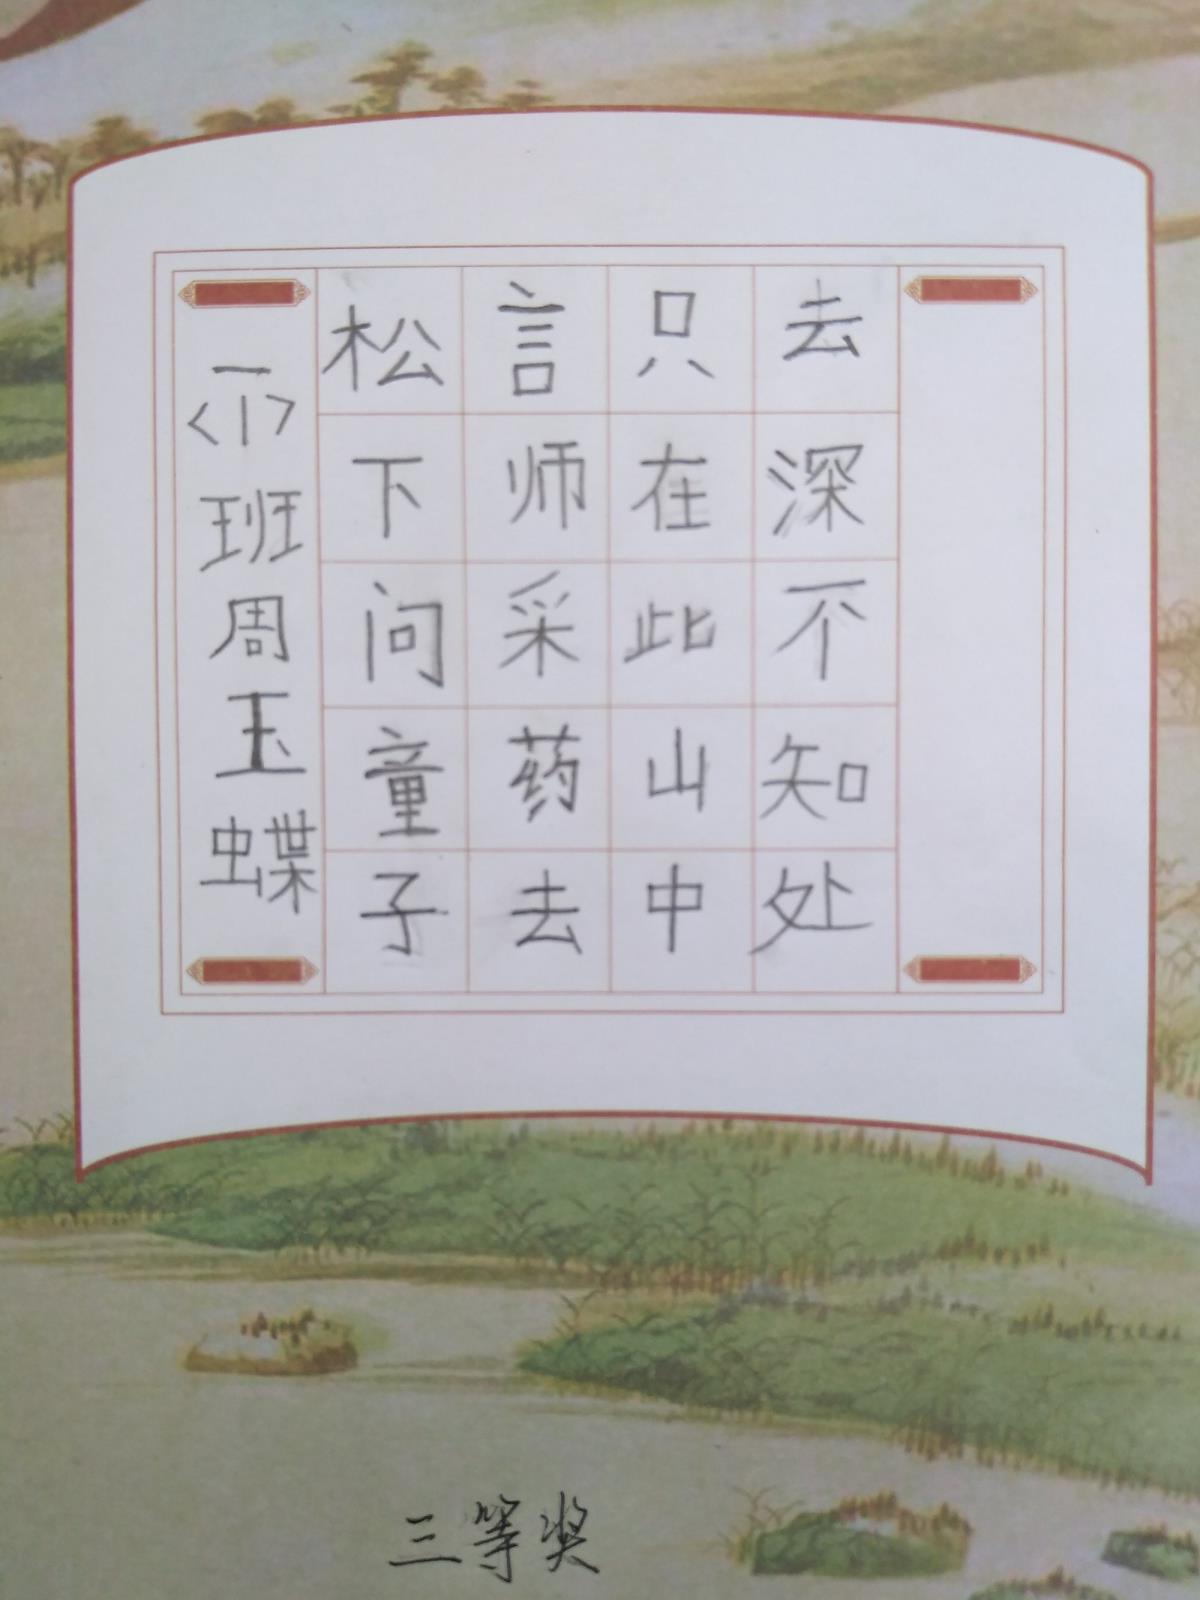 一<1>班周玉蝶
松下问童子
言师采药去
只在此山中
去深不知处
三等奖